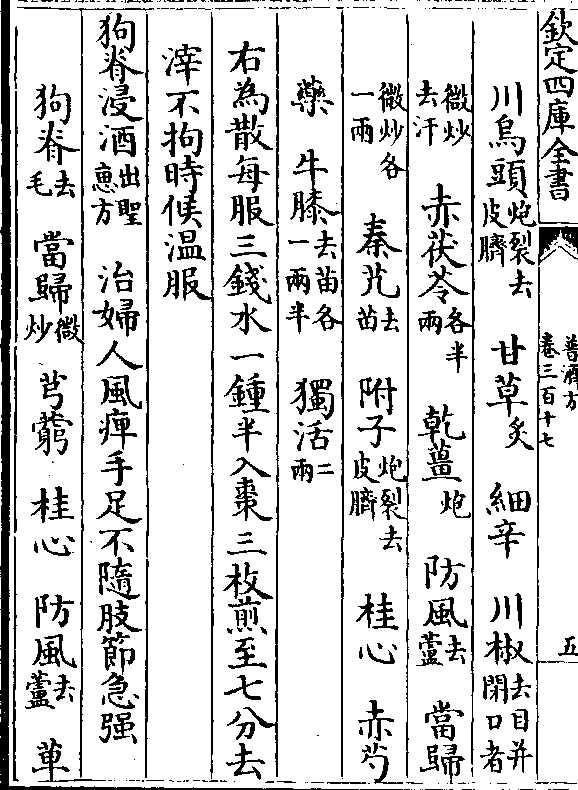 欽定四庫全書
普濟方
卷三百十七
五
川烏頭炮裂去皮臍 甘草炙 細辛 川椒去目并閉口者
微炒去汗 赤茯苓各半兩 乾薑炮 防風去蘆 當歸
微炒各一兩 秦艽去苗 附子炮裂去皮臍 桂心 赤芍
藥 牛膝去苗各一兩半 獨活二兩
右為散每服三錢水一鍾半入棗三枚煎至七分去
滓不拘時候温服
狗脊浸酒出聖惠方 治婦人風痺手足不隨肢節急强
狗脊去毛 當歸微炒 芎藭 桂心 防風去蘆 萆